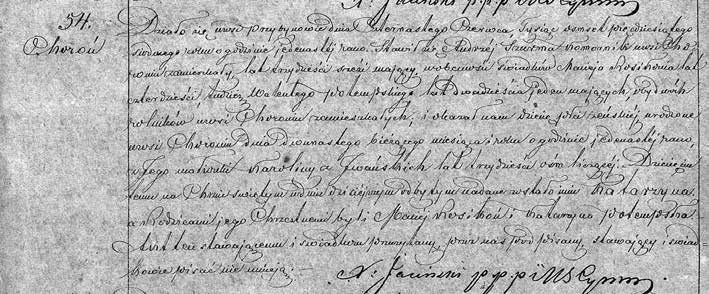 N: Jaciński p.p.p. i U S Cywn
54.
Choroń
Działo się wewsi Przybynowie dnia Czternastego Czerwca, tysiąc ośmset pięćdziesiątego
siódmego roku o godzinie jedenastej rano. Stawił się Andrzej komornik wewsi Cho-
roniu zamieszkały, lat trzydzieści sześć mający wobecności świadków Macieja Kosikonia lat
czterdzieści, tudzież Walentego Potempskiego lat dwadzieścia jeden mających obydwóch
rolników, wewsi Choroniu zamieszkałych, i okazał nam Dziecię płci żeńskiej urodzone
wewsi Choroniu dnia dwunastego bieżącego miesiąca i roku o godzinie jedenastej rano,
z Jego małżonki Karoliny z Iwańskich lat trzydzieści ośm liczącej. Dziecięciu
temu na Chrzcie świętym wdniu dzisiejszym odbytym nadane zostało imie Katarzyna,
a Rodzicami jego Chrzestnemi byli Maciej Kosikoń i Katarzyna Potempska
Akt ten stawającemu i świadkom przeczytany, przez nas podpisany, stawający i świad-
kowie pisać nie umieją.
N: Jaciński p.p.p. i U S Cywn